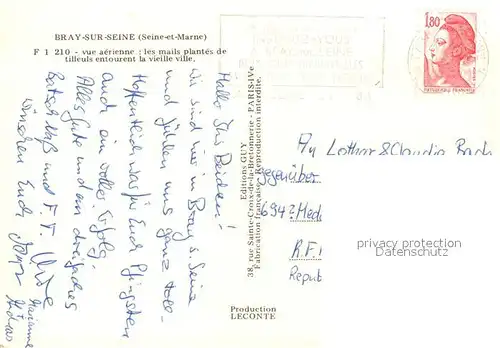 BRAY-SUR-SEINE (Seine-et-Marne)
F 1 210 - vue aérienne : les mails plantés de
tilleuls entourent la vieille ville.
Hallo Ihr Beiden!
Wir sind hier in Bray s. Seine
und fühlen uns ganz toll-
Hoffentlich war für Euch Pfingsten
auch ein voller Erfolg-
Alles Gute und ein dreifaches
und F.F.
wünschen Euch
Marianne
+
Editions GUY
38, rue Sainte-Croix-de-la-Bretonnerie - PARIS-IVe
Fabrication française - Reproduction interdite.
Production
LECONTE
1,80
An Lothar & Claudia
gegenüber
694
R.F.
privacy protection
Datenschutz